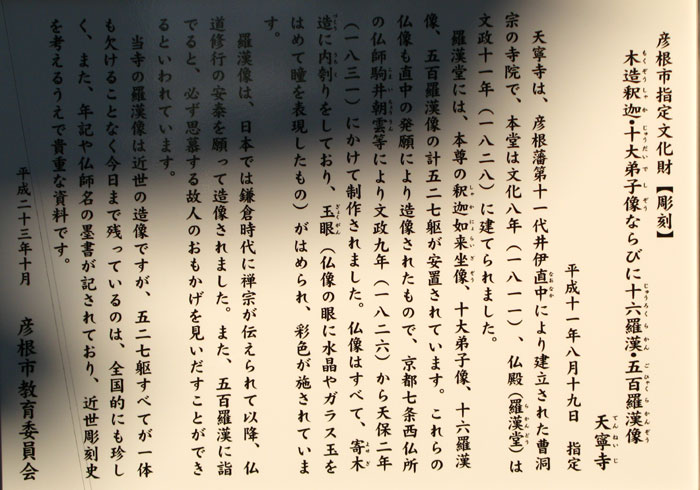 彦根市指定文化財【彫刻】
木造釈迦・十大弟子像ならびに十六羅漢・五百羅漢像
天寧寺
平成十一年八月十九日　指定
天寧寺は、彦根藩第十一代井伊直中により建立された曹洞
宗の寺院で、本堂は文化八年（一八一一）、仏殿（羅漢堂）は
文政十一年（一八二八）に建てられました。
羅漢堂には、本尊の釈迦如来坐像、十大弟子像、十六羅漢
像、五百羅漢像の計五二七躯が安置されています。これらの
仏像も直中の発願により造像されたもので、京都七条西仏所
の仏師駒井朝雲等により文政九年（一八二六）から天保二年
（一八三一）にかけて制作されました。仏像はすべて、寄木
造に内刳りをしており、玉眼（仏像の眼に水晶やガラス玉を
はめて瞳を表現したもの）がはめられ、彩色が施されていま
す。
羅漢像は、日本では鎌倉時代に禅宗が伝えられて以降、仏
道修行の安泰を願って造像されました。また、五百羅漢に詣
でると、必ず思慕する故人のおもかげを見いだすことができ
るといわれています。
当寺の羅漢像は近世の造像ですが、五二七躯すべてが一体
も欠けることなく今日まで残っているのは、全国的にも珍し
く、また、年記や仏師名の墨書が記されており、近世彫刻史
を考えるうえで貴重な資料です。
平成二十三年十月　彦根市教育委員会